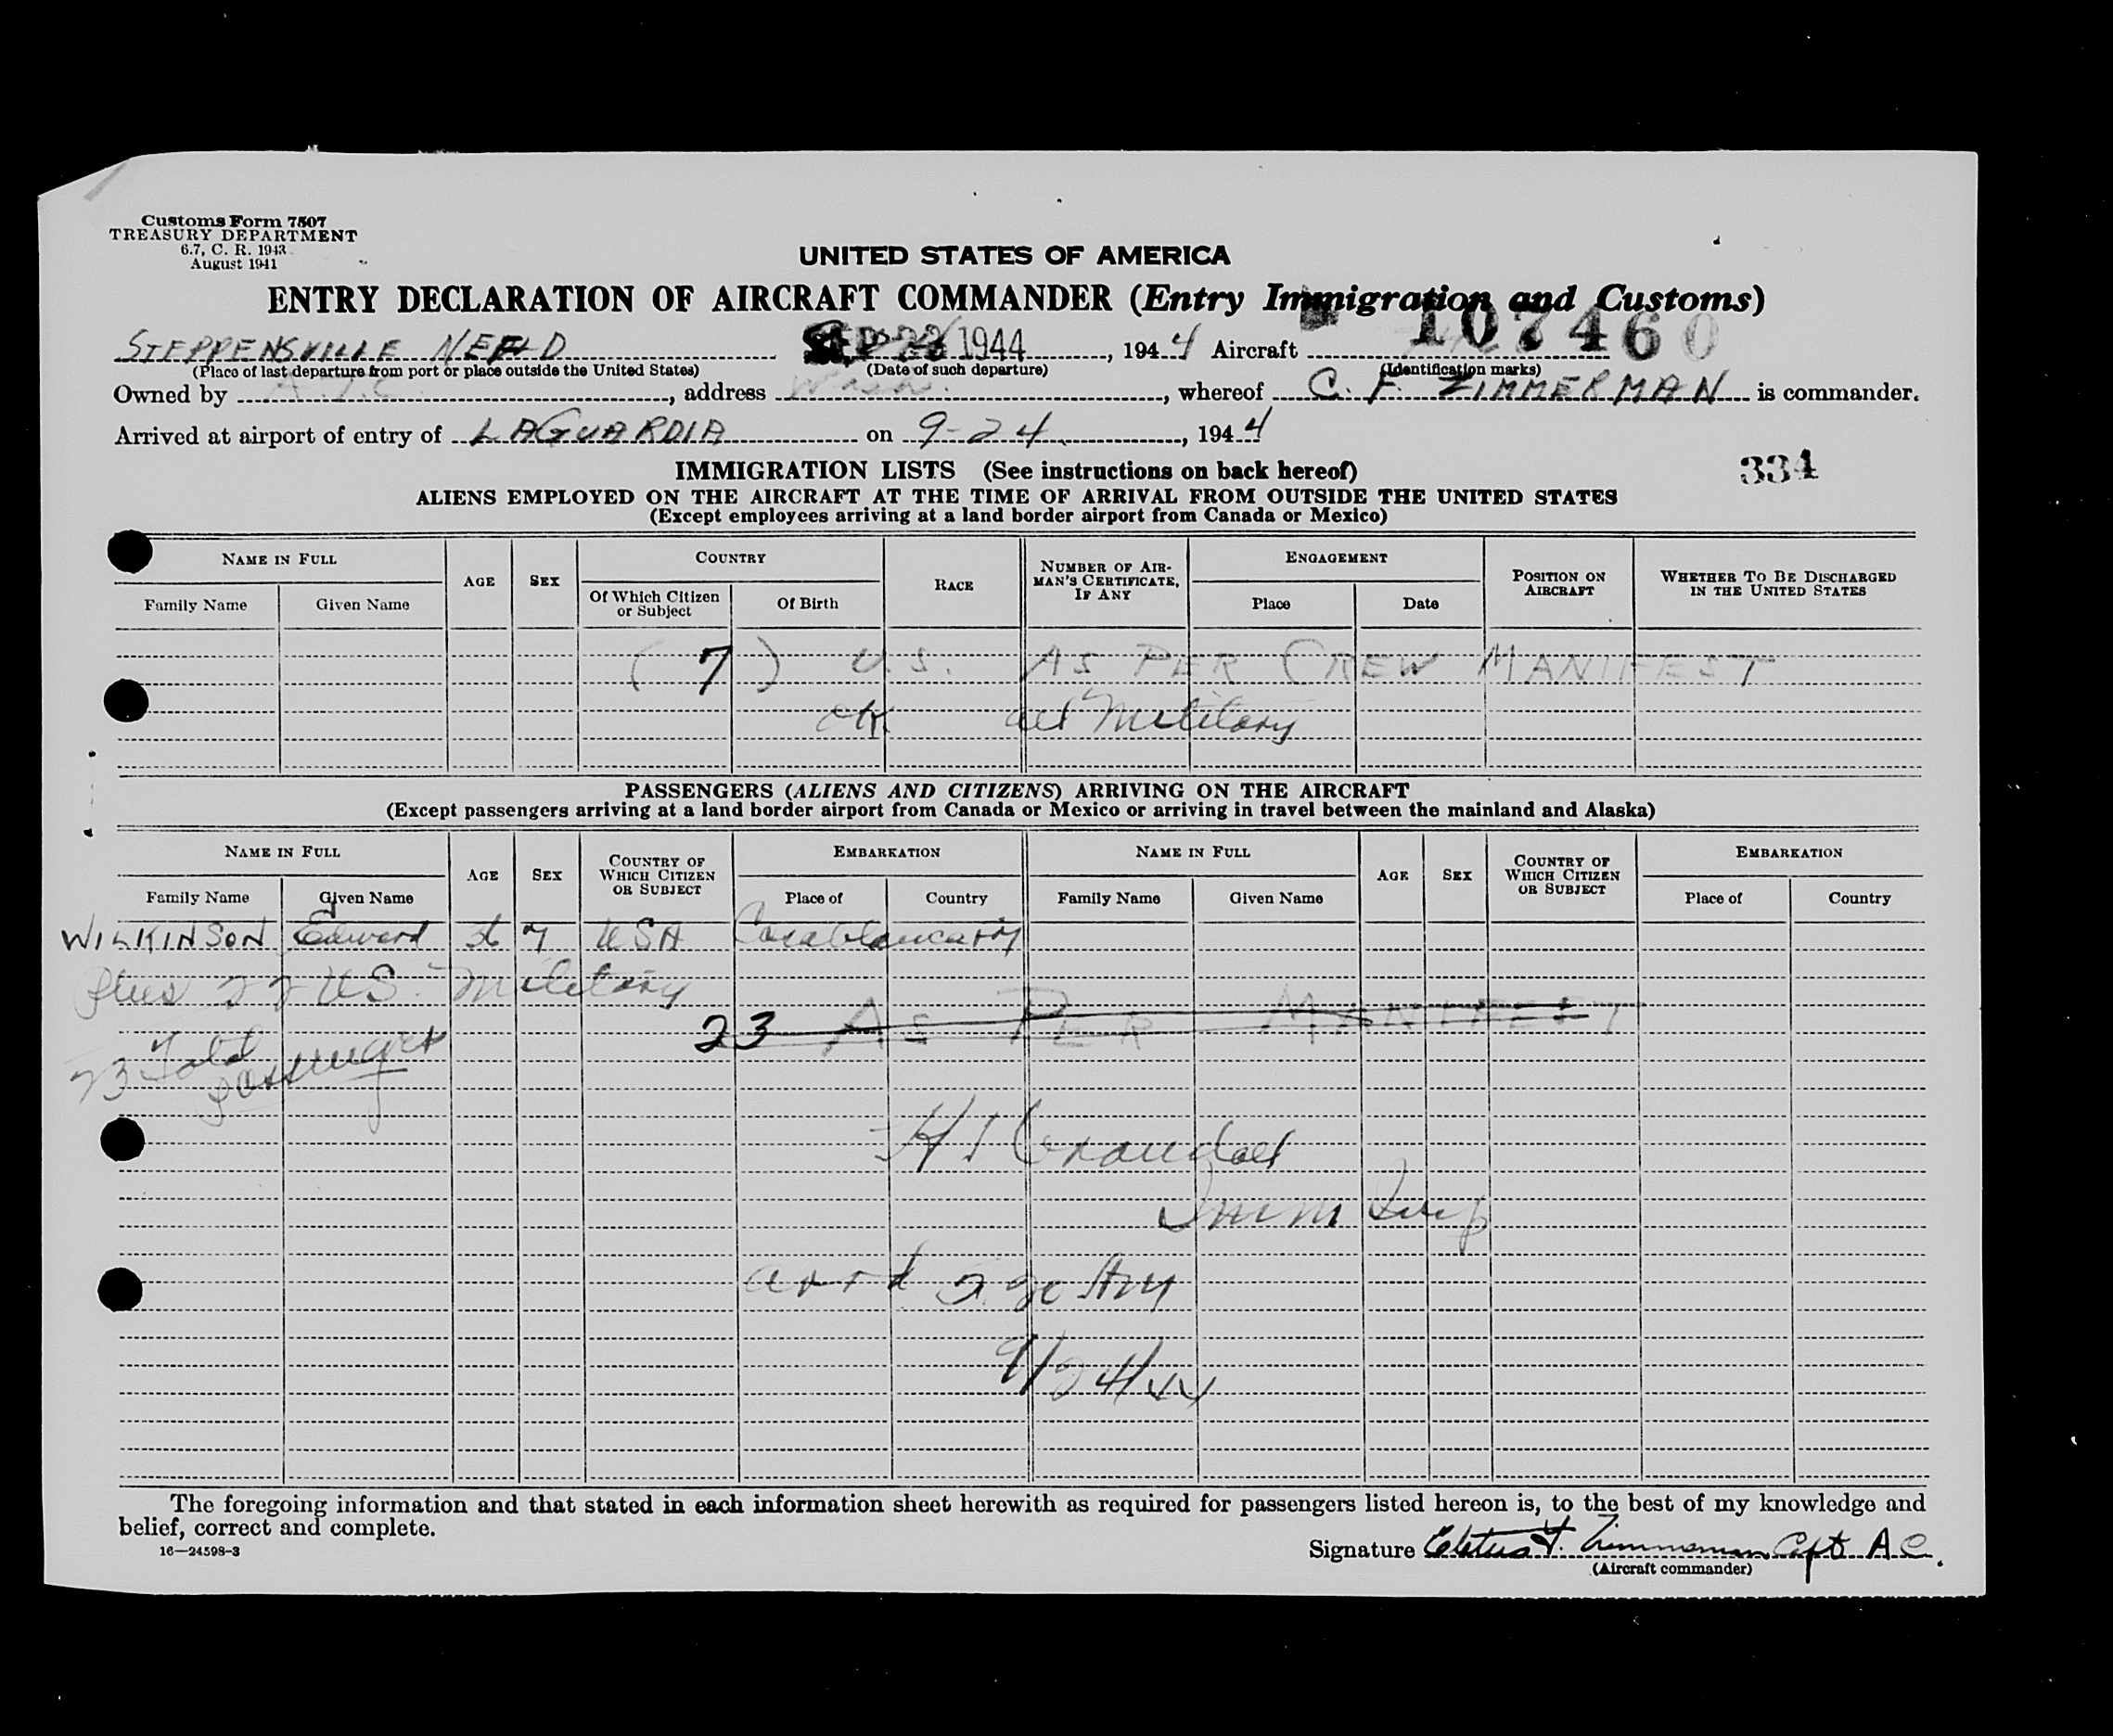 Customs Form 7507
TREASURY DEPARTMENT
6.7, C. R. 1943
August 1941
UNITED STATES OF AMERICA
ENTRY DECLARATION OF AIRCRAFT COMMANDER (Entry Immigration and Customs)
107460
STEPPENSVILLE NEFLD 1944, 1944 Aircraft
(Place of last departure from port or place outside the United States) (Date of such departure) (Identification marks)
Owned by A.T.C., address Wash., whereof C. F. ZIMMERMAN is commander.
Arrived at airport of entry of LAGUARDIA on 9-24, 1944
IMMIGRATION LISTS (See instructions on back hereof) 334
ALIENS EMPLOYED ON THE AIRCRAFT AT THE TIME OF ARRIVAL FROM OUTSIDE THE UNITED STATES
(Except employees arriving at a land border airport from Canada or Mexico)
NAME IN FULL AGE SEX COUNTRY RACE NUMBER OF AIRMAN'S CERTIFICATE, IF ANY ENGAGEMENT POSITION ON AIRCRAFT WHETHER TO BE DISCHARGED IN THE UNITED STATES
Family Name Given Name Of Which Citizen or Subject Of Birth Place Date
(7) U.S. AS PER CREW MANIFEST
OK all Military
PASSENGERS (ALIENS AND CITIZENS) ARRIVING ON THE AIRCRAFT
(Except passengers arriving at a land border airport from Canada or Mexico or arriving in travel between the mainland and Alaska)
NAME IN FULL AGE SEX COUNTRY OF WHICH CITIZEN OR SUBJECT EMBARKATION NAME IN FULL AGE SEX COUNTRY OF WHICH CITIZEN OR SUBJECT EMBARKATION
Family Name Given Name Place of Country Family Name Given Name Place of Country
WILKINSON Edward M USA Casablanca
plus 22 US. Military
23 AS PER MANIFEST
23 Total passenger
Imm Insp
9/24/44
The foregoing information and that stated in each information sheet herewith as required for passengers listed hereon is, to the best of my knowledge and
belief, correct and complete.
16—24598-3
Signature Cletus F. Zimmerman Capt A C.
(Aircraft commander)